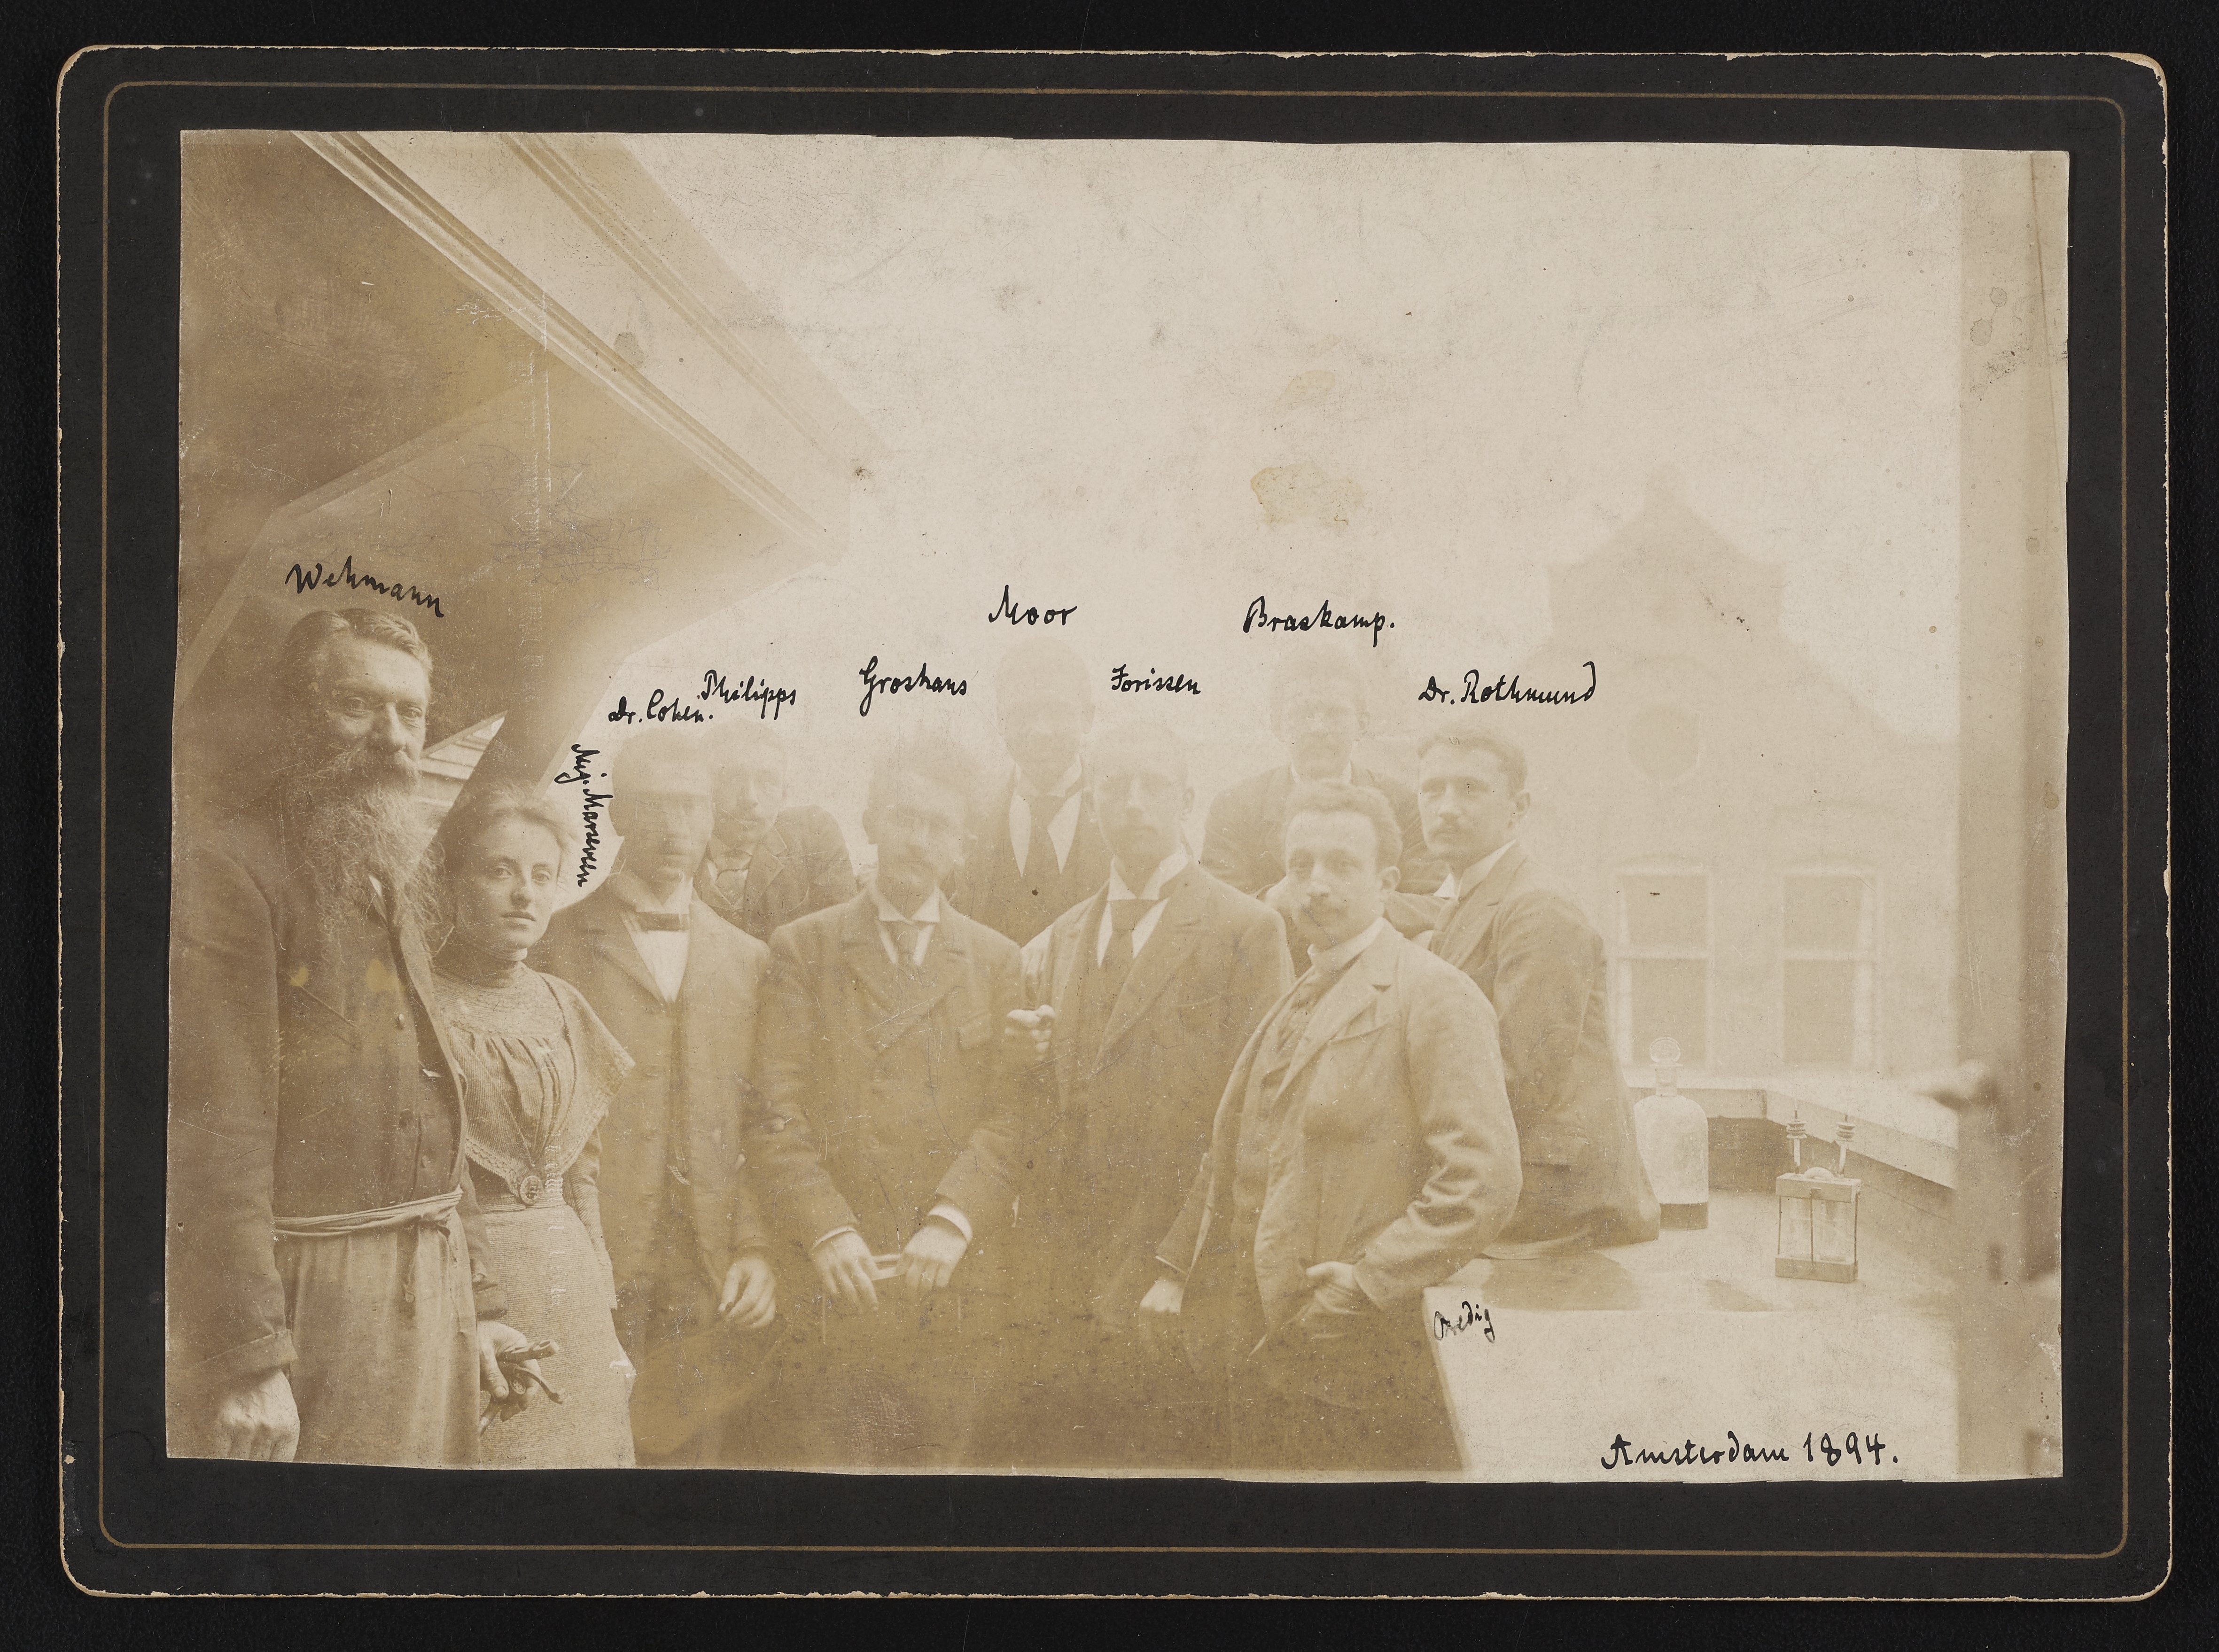 Wehmann
Mej. Marseveen
Dr. Cohen.
Philipps
Groshans
Moor
Jorissen
Braskamp.
Dr. Rothmund
Bredig
Amsterdam 1894.